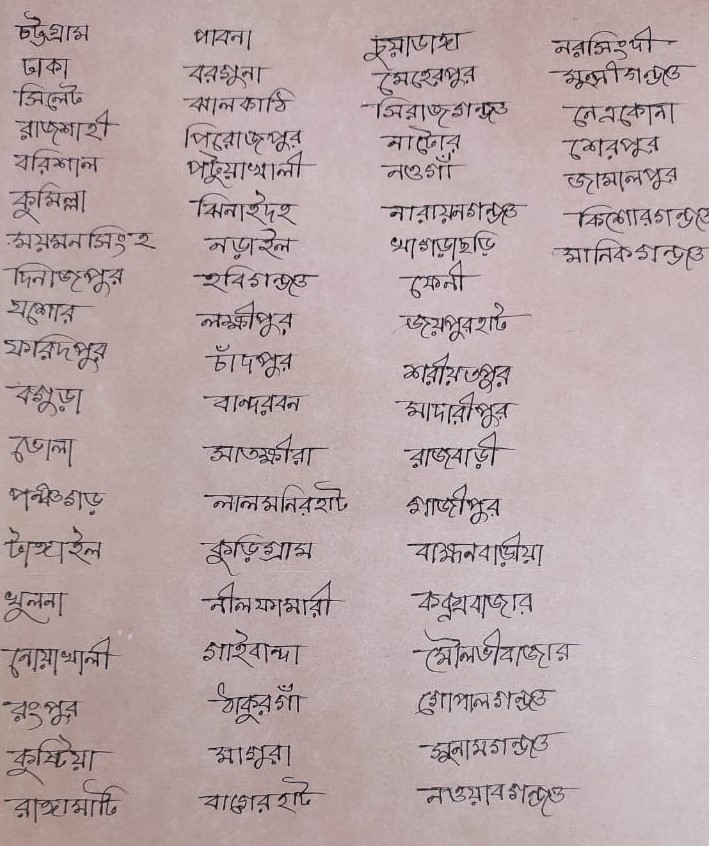 চট্টগ্রাম
ঢাকা
সিলেট
রাজশাহী
বরিশাল
কুমিল্লা
ময়মনসিংহ
দিনাজপুর
যশোর
ফরিদপুর
বগুড়া
ভোলা
পঞ্চগড়
টাঙ্গাইল
খুলনা
নোয়াখালী
রংপুর
কুষ্টিয়া
রাঙ্গামাটি
পাবনা
বরগুনা
ঝালকাঠি
পিরোজপুর
পটুয়াখালী
ঝিনাইদহ
নড়াইল
হবিগঞ্জ
লক্ষীপুর
চাঁদপুর
বান্দরবন
সাতক্ষীরা
লালমনিরহাট
কুড়িগ্রাম
নীলফামারী
গাইবান্দা
ঠাকুরগাঁ
মাগুরা
বাগেরহাট
চুয়াডাঙ্গা
মেহেরপুর
সিরাজগঞ্জ
নাটোর
নওগাঁ
নারায়নগঞ্জ
খাগড়াছড়ি
ফেনী
জয়পুরহাট
শরীয়তপুর
মাদারীপুর
রাজবাড়ী
গাজীপুর
বাহ্মনবাড়ীয়া
কক্সবাজার
মৌলভীবাজার
গোপালগঞ্জ
সুনামগঞ্জ
নওয়াবগঞ্জ
নরসিংদী
মুন্সীগঞ্জ
নেত্রকোনা
শেরপুর
জামালপুর
কিশোরগঞ্জ
মানিকগঞ্জ